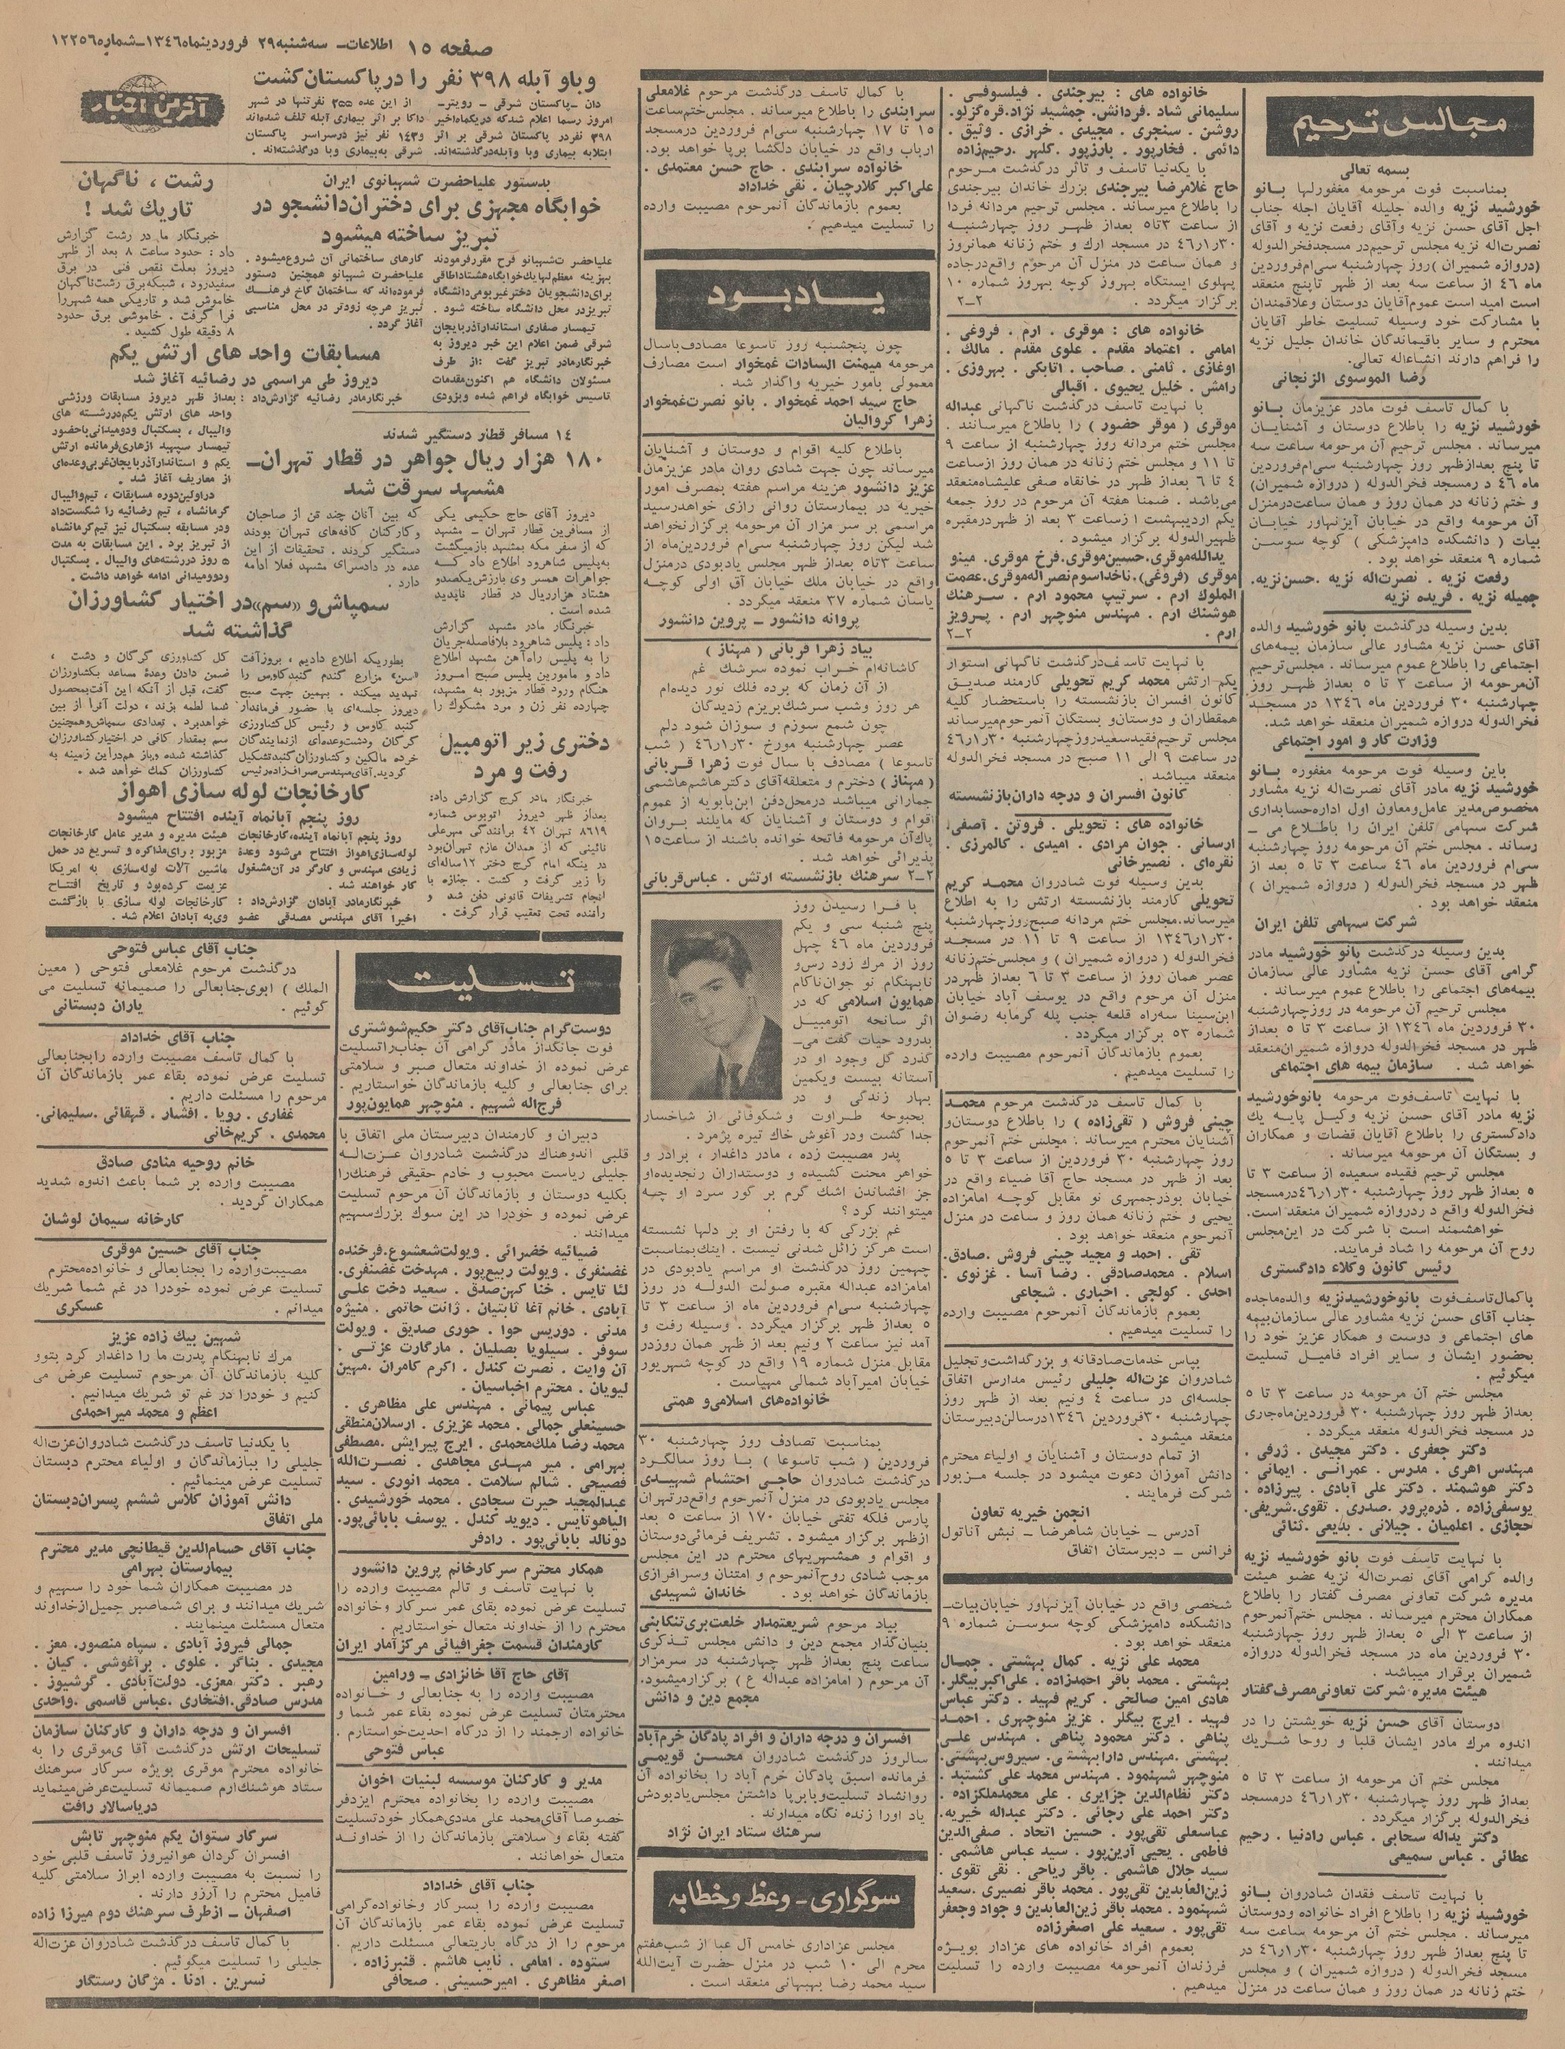 صفحه ۱۵ اطلاعات- سه‌شنبه ۲۹ فروردینماه ۱۳۴۶-شماره ۱۲۲۵۶
مجالس ترحیم
بسمه تعالی
بمناسبت فوت مرحومه مغفورلها بانو
خورشید نزیه والده جلیله آقایان اجله جناب
اجل آقای حسن نزیه وآقای رفعت نزیه و آقای
نصرت‌اله نزیه مجلس ترحیم‌در مسجدفخرالدوله
(دروازه شمیران )روز چهارشنبه سی‌ام‌فروردین
ماه ۴۶ از ساعت سه بعد از ظهر تاپنج منعقد
است امید است عموم‌آقایان دوستان وعلاقمندان
با مشارکت خود وسیله تسلیت خاطر آقایان
محترم و سایر باقیماندگان خاندان جلیل نزیه
را فراهم دارند انشاءاله تعالی.
رضا الموسوی الزنجانی
با کمال تاسف فوت مادر عزیزمان بانو
خورشید نزیه را باطلاع دوستان و آشنایان
میرساند . مجلس ترحیم آن مرحومه ساعت سه
تا پنج بعدازظهر روز چهارشنبه سی‌ام‌فروردین
ماه ۴۶ د رمسجد فخرالدوله ( دروازه شمیران)
و ختم زنانه در همان روز و همان ساعت‌درمنزل
آن مرحومه واقع در خیابان آیزنهاور خیابان
بیات ( دانشکده دامپزشکی ) کوچه سوسن
شماره ۹ منعقد خواهد بود.
رفعت نزیه . نصرت‌اله نزیه .حسن‌نزیه.
جمیله نزیه . فریده نزیه
بدین وسیله درگذشت بانو خورشید والده
آقای حسن نزیه مشاور عالی سازمان بیمه‌های
اجتماعی را باطلاع عموم میرساند . مجلس‌ترحیم
آن‌مرحومه از ساعت ۳ تا ۵ بعداز ظهر روز
چهارشنبه ۳۰ فروردین ماه ۱۳۴۶ در مسجد
فخرالدوله دروازه شمیران منعقد خواهد شد.
وزارت کار و امور اجتماعی
باین وسیله فوت مرحومه مغفوره بانو
خورشید نزیه مادر آقای نصرت‌اله نزیه مشاور
مخصوص‌مدیر عامل‌ومعاون اول اداره‌حسابداری
شرکت سهامی تلفن ایران را باطلاع می -
رساند . مجلس ختم آن مرحومه روز چهارشنبه
سی‌ام فروردین ماه ۴۶ ساعت ۳ تا ۵ بعد از
ظهر در مسجد فخرالدوله ( دروازه شمیران )
منعقد خواهد بود .
شرکت سهامی تلفن ایران
بدین وسیله درگذشت بانو خورشید مادر
گرامی آقای حسن نزیه مشاور عالی سازمان
بیمه‌های اجتماعی را باطلاع عموم میرساند .
مجلس ترحیم آن مرحومه در روزچهارشنبه
۳۰ فروردین ماه ۱۳۴۶ از ساعت ۳ تا ۵ بعداز
ظهر در مسجد فخرالدوله دروازه شمیران‌منعقد
خواهد شد . سازمان بیمه های اجتماعی
با نهایت تاسف‌فوت مرحومه بانوخورشید
نزیه مادر آقای حسن نزیه وکیل پایه یک
دادگستری را باطلاع آقایان قضات و همکاران
و بستگان آن مرحومه میرساند .
مجلس ترحیم فقیده سعیده از ساعت ۳ تا
۵ بعداز ظهر روز چهارشنبه ۴۶ر۱ر۳۰درمسجد
فخرالدوله واقع د ردروازه شمیران منعقد است.
خواهشمند است با شرکت در این‌مجلس
روح آن مرحومه را شاد فرمایند.
رئیس کانون وکلاء دادگستری
باکمال‌تاسف‌فوت بانوخورشیدنزیه والده‌ماجده
جناب آقای حسن نزیه مشاور عالی سازمان‌بیمه
های اجتماعی و دوست و همکار عزیز خود را
بحضور ایشان و سایر افراد فامیل تسلیت
میگوئیم .
مجلس ختم آن مرحومه در ساعت ۳ تا ۵
بعداز ظهر روز چهارشنبه ۳۰ فروردین‌ماه‌جاری
در مسجد فخرالدوله منعقد میگردد.
دکتر جعفری . دکتر مجیدی . ژرفی .
مهندس اهری . مدرس . عمرانی . ایمانی .
دکتر هوشمند . دکتر علی آبادی . پیرزاده .
یوسفی‌زاده . ذره‌پرور .صدری . تقوی.شریفی.
حجازی . اعلمیان . جیلانی . بدیعی .ثنائی
با نهایت تاسف فوت بانو خورشید نزیه
والده گرامی آقای نصرت‌اله نزیه عضو هیئت
مدیره شرکت تعاونی مصرف گفتار را باطلاع
همکاران محترم میرساند . مجلس ختم‌آنمرحوم
از ساعت ۳ الی ۵ بعداز ظهر روز چهارشنبه
۳۰ فروردین ماه در مسجد فخرالدوله دروازه
شمیران برقرار میباشد .
هیئت مدیره شرکت تعاونی‌مصرف‌گفتار
دوستان آقای حسن نزیه خویشتن را در
اندوه مرگ مادر ایشان قلبا و روحا شریک
میدانند .
مجلس ختم آن مرحومه از ساعت ۳ تا ۵
بعداز ظهر روز چهارشنبه ۴۶ر۱ر۳۰ درمسجد
فخرالدوله برگزار میگردد .
دکتر یداله سحابی . عباس رادنیا . رحیم
عطائی . عباس سمیعی
با نهایت تاسف فقدان شادروان بانو
خورشید نزیه را باطلاع افراد خانواده ودوستان
میرساند . مجلس ختم آن مرحومه ساعت سه
تا پنج بعداز ظهر روز چهارشنبه ۴۶ر۱ر۳۰ در
مسجد فخرالدوله ( دروازه شمیران ) و مجلس
ختم زنانه در همان روز و همان ساعت در منزل
خانواده های : بیرجندی . فیلسوفی .
سلیمانی شاد .فردانش. جمشید نژاد.قره‌گزلو.
روشن . سنجری . مجیدی . خرازی . وثیق .
دائمی . فخارپور . بارزپور . کلهر .رحیم‌زاده
با یکدنیا تاسف و تاثر درگذشت مرحوم
حاج غلامرضا بیرجندی بزرگ خاندان بیرجندی
را باطلاع میرساند . مجلس ترحیم مردانه فردا
از ساعت ۳تا۵ بعداز ظهر روز چهارشنبه
۴۶ر۱ر۳۰ در مسجد ارک و ختم زنانه همانروز
و همان ساعت در منزل آن مرحوم واقع‌درجاده
پهلوی ایستگاه بهروز کوچه بهروز شماره ۱۰
برگزار میگردد . ۲-۲
خانواده های : موقری . ارم . فروغی .
امامی . اعتماد مقدم . علوی مقدم . مالک .
اوغازی . ثامنی . صاحب . اتابکی . بهروزی .
رامش . خلیل یحیوی . اقبالی
با نهایت تاسف درگذشت ناگهانی عبداله
موقری ( موقر حضور ) را باطلاع میرسانند .
مجلس ختم مردانه روز چهارشنبه از ساعت ۹
تا ۱۱ و مجلس ختم زنانه در همان روز ازساعت
۴ تا ۶ بعداز ظهر در خانقاه صفی علیشاه‌منعقد
می‌باشد . ضمنا هفته آن مرحوم در روز جمعه
یکم اردیبهشت ۱ زساعت ۳ بعد از ظهردرمقبره
ظهیرالدوله برگزار میشود .
یدالله‌موقری.حسین‌موقری.فرخ موقری. مینو
موقری (فروغی).ناخداسوم‌نصراله‌موقری.عصمت
الملوک ارم . سرتیپ محمود ارم . سرهنگ
هوشنگ ارم . مهندس منوچهر ارم . پرویز
ارم . ۲-۲
با نهایت تاسف‌درگذشت ناگهانی استوار
یکم‌ارتش محمد کریم تحویلی کارمند صدیق
کانون افسران بازنشسته را باستحضار کلیه
همقطاران و دوستان‌و بستگان آنمرحوم‌میرساند
مجلس ترحیم‌فقیدسعیدروز چهارشنبه ۴۶ر۱ر۳۰
در ساعت ۹ الی ۱۱ صبح در مسجد فخرالدوله
منعقد میباشد .
کانون افسران و درجه داران‌بازنشسته
خانواده های : تحویلی . فروتن . آصفی.
ارسانی . جوان مرادی . امیدی . کالمرزی .
نقره‌ای . نصیرخانی
بدین وسیله فوت شادروان محمد کریم
تحویلی کارمند بازنشسته ارتش را به اطلاع
میرساند.مجلس ختم مردانه صبح‌روز چهارشنبه
۱۳۴۶ر۱ر۳۰ از ساعت ۹ تا ۱۱ در مسجد
فخرالدوله ( دروازه شمیران ) و مجلس‌ختم‌زنانه
عصر همان روز از ساعت ۳ تا ۶ بعداز ظهردر
منزل آن مرحوم واقع در یوسف آباد خیابان
ابن‌سینا سه‌راه قلعه جنب پله گرمابه رضوان
شماره ۵۳ برگزار میگردد .
بعموم بازماندگان آنمرحوم مصیبت وارده
را تسلیت میدهیم .
با کمال تاسف درگذشت مرحوم محمد
چینی فروش ( تقی‌زاده ) را باطلاع دوستان‌و
آشنایان محترم میرساند : مجلس ختم آنمرحوم
روز چهارشنبه ۳۰ فروردین از ساعت ۳ تا ۵
بعد از ظهر در مسجد حاج آقا ضیاء واقع در
خیابان بوذرجمهری نو مقابل کوچه امامزاده
یحیی و ختم زنانه همان روز و ساعت در منزل
آنمرحوم منعقد خواهد بود .
تقی . احمد و مجید چینی فروش .صادق.
اسلام . محمدصادقی . رضا آسا . غزنوی .
احدی . کولجی . اخباری . شجاعی
بعموم بازماندگان آنمرحوم مصیبت وارده
را تسلیت میدهیم .
بپاس خدمات‌صادقانه و بزرگداشت‌وتجلیل
شادروان عزت‌اله جلیلی رئیس مدارس اتفاق
جلسه‌ای در ساعت ۴ ونیم بعد از ظهر روز
چهارشنبه ۳۰فروردین ۱۳۴۶درسالن‌دبیرستان
منعقد میشود .
از تمام دوستان و آشنایان و اولیاء محترم
دانش آموزان دعوت میشود در جلسه مزبور
شرکت فرمایند .
انجمن خیریه تعاون
آدرس - خیابان شاهرضا - نبش آناتول
فرانس - دبیرستان اتفاق
شخصی واقع در خیابان آیزنهاور خیابان‌بیات-
دانشکده دامپزشکی کوچه سوسن شماره ۹
منعقد خواهد بود .
محمد علی نزیه . کمال بهشتی . جمال
بهشتی . محمد باقر احمدزاده . علی‌اکبربیگلر.
هادی امین صالحی . کریم فهید . دکتر عباس
فهید . ایرج بیگلر . عزیز منوچهری . احمد
پناهی . دکتر محمود پناهی . مهندس علی
بهشتی .مهندس دارابهشتی . سیروس‌بهشتی.
منوچهر شهنمود . مهندس محمد علی کشتبد .
دکتر نظام‌الدین جزایری . علی محمدملکزاده .
دکتر احمد علی رجائی . دکتر عبداله خیریه.
عباسعلی تقی‌پور . حسین اتحاد . صفی‌الدین
فاطمی . یحیی آرین‌پور . سید عباس هاشمی .
سید جلال هاشمی . باقر ریاحی . نقی تقوی .
زین‌العابدین تقی‌پور . محمد باقر نصیری .سعید
شهنمود . محمد باقر زین‌العابدین و جواد وجعفر
تقی‌پور . سعید علی اصغرزاده
بعموم افراد خانواده های عزادار بویژه
فرزندان آنمرحومه مصیبت وارده را تسلیت
میدهیم .
با کمال تاسف درگذشت مرحوم غلامعلی
سرابندی را باطلاع میرساند . مجلس‌ختم‌ساعت
۱۵ تا ۱۷ چهارشنبه سی‌ام فروردین درمسجد
ارباب واقع در خیابان دلگشا برپا خواهد بود.
خانواده سرابندی . حاج حسن معتمدی .
علی‌اکبر کلارچیان . نقی خداداد
بعموم بازماندگان آنمرحوم مصیبت وارده
را تسلیت میدهیم .
یادبود
چون پنجشنبه روز تاسوعا مصادف‌باسال
مرحومه میمنت السادات غمخوار است مصارف
معمولی بامور خیریه واگذار شد .
حاج سید احمد غمخوار . بانو نصرت‌غمخوار
زهرا کروالیان
باطلاع کلیه اقوام و دوستان و آشنایان
میرساند چون جهت شادی روان مادر عزیزمان
عزیز دانشور هزینه مراسم هفته بمصرف امور
خیریه در بیمارستان روانی رازی خواهدرسید
مراسمی بر سر مزار آن مرحومه برگزارنخواهد
شد لیکن روز چهارشنبه سی‌ام فروردین‌ماه از
ساعت ۳تا۵ بعداز ظهر مجلس یادبودی درمنزل
واقع در خیابان ملک خیابان آق اولی کوچه
یاسان شماره ۳۷ منعقد میگردد .
پروانه دانشور - پروین دانشور
بیاد زهرا قربانی ( مهناز )
کاشانه‌ام خراب نموده سرشک غم
از آن زمان که برده فلک نور دیده‌ام
هر روز وشب سرشک‌بریزم زدیدگان
چون شمع سوزم و سوزان شود دلم
عصر چهارشنبه مورخ ۴۶ر۱ر۳۰ ( شب
تاسوعا ) مصادف با سال فوت زهرا قربانی
( مهناز ) دخترم و متعلقه‌آقای دکترهاشم‌هاشمی
جمارانی میباشد درمحل‌دفن ابن‌بابویه از عموم
اقوام و دوستان و آشنایان که مایلند بروان
پاک‌آن مرحومه فاتحه خوانده باشند از ساعت۱۵
پذیرائی خواهد شد .
۲-۲ سرهنگ بازنشسته ارتش . عباس‌قربانی
با فرا رسیدن روز
پنج شنبه سی و یکم
فروردین ماه ۴۶ چهل
روز از مرگ زود رس‌و
نابهنگام نو جوان‌ناکام
همایون اسلامی که در
اثر سانحه اتومبیل
بدرود حیات گفت می-
گذرد گل وجود او در
آستانه بیست ویکمین
بهار زندگی و در
بحبوحه طراوت و شکوفائی از شاخسار
جدا گشت ودر آغوش خاک تیره پژمرد .
پدر مصیبت زده ، مادر داغدار ، برادر و
خواهر محنت کشیده و دوستداران رنجدیده‌او
جز افشاندن اشک گرم بر گور سرد او چه
میتوانند کرد ؟
غم بزرگی که با رفتن او بر دلها نشسته
است هرگز زائل شدنی نیست . اینک‌بمناسبت
چهمین روز درگذشت او مراسم یادبودی در
امامزاده عبداله مقبره صولت الدوله در روز
چهارشنبه سی‌ام فروردین ماه از ساعت ۳ تا
۵ بعداز ظهر برگزار میگردد . وسیله رفت و
آمد نیز ساعت ۲ ونیم بعد از ظهر همان روزدر
مقابل منزل شماره ۱۹ واقع در کوچه شهریور
خیابان امیرآباد شمالی مهیاست .
خانواده‌های اسلامی‌و همتی
بمناسبت تصادف روز چهارشنبه ۳۰
فروردین ( شب تاسوعا ) با روز سالگرد
درگذشت شادروان حاجی احتشام شهیدی
مجلس یادبودی در منزل آنمرحوم واقع‌درتهران
پارس فلکه تفتی خیابان ۱۷۰ از ساعت ۵ بعد
ازظهر برگزار میشود . تشریف فرمائی‌دوستان
و اقوام و همشهریهای محترم در این مجلس
موجب شادی روح‌آنمرحوم و امتنان وسرافرازی
بازماندگان خواهد بود . خاندان شهیدی
بیاد مرحوم شریعتمدار خلعت‌بری‌تنکابنی
بنیان‌گذار مجمع دین و دانش مجلس تذکری
ساعت پنج بعداز ظهر چهارشنبه در سرمزار
آن مرحوم ( امامزاده عبداله ع ) برگزارمیشود.
مجمع دین و دانش
افسران و درجه داران و افراد پادگان خرم‌آباد
سالروز درگذشت شادروان محسن قویمی
فرمانده اسبق پادگان خرم آباد را بخانواده آن
روانشاد تسلیت‌وبابرپا داشتن مجلس‌یادبودش
یاد اورا زنده نگاه میدارند .
سرهنگ ستاد ایران نژاد
سوگواری-وعظ و خطابه
مجلس عزاداری خامس آل عبا از شب‌هفتم
محرم الی ۱۰ شب در منزل حضرت آیت‌الله
سید محمد رضا بهبهانی منعقد است .
آخرین اخبار
وباو آبله ۳۹۸ نفر را در پاکستان کشت
دان -پاکستان شرقی - رویتر-
امروز رسما اعلام شدکه دریکماه‌اخیر
۳۹۸ نفردر پاکستان شرقی بر اثر
ابتلابه بیماری وبا وآبله‌درگذشته‌اند.
از این عده ۲۵۵ نفرتنها در شهر
داکا بر اثر بیماری آبله تلف شده‌اند
و۱۴۳ نفر نیز درسراسر پاکستان
شرقی به‌بیماری وبا درگذشته‌اند .
بدستور علیاحضرت شهبانوی ایران
خوابگاه مجهزی برای دختران‌دانشجو در
تبریز ساخته میشود
علیاحضر ت‌شهبانو فرح مقررفرمودند
بهزینه معظم‌لهایک‌خوابگاه‌هشتاداطاقی
برای‌دانشجویان دخترغیربومی‌دانشگاه
تبریزدر محل دانشگاه ساخته شود .
تیمسار صفاری استاندارآذربایجان
شرقی ضمن اعلام این خبر دیروز به
خبرنگارمادر تبریز گفت :از طرف
مسئولان دانشگاه هم اکنون‌مقدمات
تاسیس خوابگاه فراهم شده وبزودی
کارهای ساختمانی آن شروع‌میشود .
علیاحضرت شهبانو همچنین دستور
فرموده‌اند که ساختمان کاخ فرهنگ
تبریز هرچه زودتر در محل مناسبی
آغاز گردد .
رشت ، ناگهان
تاریک شد !
خبرنگار ما در رشت گزارش
داد : حدود ساعت ۸ بعد از ظهر
دیروز بعلت نقص فنی در برق
سفیدرود ، شبکه‌برق رشت‌ناگهان
خاموش شد و تاریکی همه شهررا
فرا گرفت . خاموشی برق حدود
۸ دقیقه طول کشید .
مسابقات واحد های ارتش یکم
دیروز طی مراسمی در رضائیه آغاز شد
خبرنگارمادر رضائیه گزارش‌داد :
بعداز ظهر دیروز مسابقات ورزشی
واحد های ارتش یکم‌دررشته های
والیبال ، بسکتبال ودومیدانی‌باحضور
تیمسار سپهبد ازهاری‌فرمانده ارتش
یکم و استاندارآذربایجان‌غربی‌وعده‌ای
از معاریف آغاز شد .
دراولین‌دوره مسابقات ، تیم‌والیبال
کرمانشاه ، تیم رضائیه را شکست‌داد
ودر مسابقه بسکتبال نیز تیم‌کرمانشاه
از تبریز برد . این مسابقات به مدت
۵ روز دررشته‌های والیبال . بسکتبال
ودوومیدانی ادامه خواهد داشت .
۱۴ مسافر قطار دستگیر شدند
۱۸۰ هزار ریال جواهر در قطار تهران-
مشهد سرقت شد
دیروز آقای حاج حکیمی یکی
از مسافرین قطار تهران - مشهد
که از سفر مکه بمشهد بازمیگشت
به‌پلیس شاهرود اطلاع داد که
جواهرات همسر وی باارزش‌یکصدو
هشتاد هزارریال در قطار ناپدید
شده است .
خبرنگار مادر مشهد گزارش
داد : پلیس شاهرود بلافاصله‌جریان
را به پلیس راه‌آهن مشهد اطلاع
داد و مامورین پلیس صبح امروز
هنگام ورود قطار مزبور به مشهد،
چهارده نفر زن و مرد مشکوک را
که بین آنان چند تن از صاحبان
وکارکنان کافه‌های تهران بودند
دستگیر کردند . تحقیقات از این
عده در دادسرای مشهد فعلا ادامه
دارد .
سمپاش‌و «سم»در اختیار کشاورزان
گذاشته شد
بطوریکه اطلاع دادیم ، بروزآفت
«سن» مزارع گندم گنبدکاوس را
تهدید میکند . بهمین جهت صبح
دیروز جلسه‌ای با حضور فرماندار
گنبد کاوس و رئیس کل‌کشاورزی
گرگان ودشت‌وعده‌ای ازنمایندگان
خرده مالکین و کشاورزان گنبدتشکیل
گردید.آقای‌مهندس‌صراف‌زاده‌رئیس
کل کشاورزی گرگان و دشت ،
ضمن دادن وعدهٔ مساعد بکشاورزان
گفت، قبل از آنکه این آفت‌بمحصول
شما لطمه بزند ، دولت آنرا از بین
خواهدبرد . تعدادی سمپاش‌وهمچنین
سم بمقدار کافی در اختیار کشاورزان
گذاشته شده وبازهم‌دراین زمینه به
کشاورزان کمک خواهد شد .
دختری زیر اتومبیل
رفت و مرد
خبرنگار مادر کرج گزارش داد:
بعداز ظهر دیروز اتوبوس شماره
۸۶۱۹ تهران ۴۲ برانندگی مهرعلی
نائینی که از همدان عازم تهران‌بود
در ینگه امام کرج دختر ۱۲ساله‌ای
را زیر گرفت و کشت . جنازه با
انجام تشریفات قانونی دفن شد و
راننده تحت تعقیب قرار گرفت .
کارخانجات لوله سازی اهواز
روز پنجم آبانماه آینده افتتاح میشود
روز پنجم آبانماه آینده،کارخانجات
لوله‌سازی‌اهواز افتتاح می‌شود وعدهٔ
زیادی مهندس و کارگر در آن‌مشغول
کار خواهند شد .
خبرنگارمادر آبادان گزارش‌داد :
اخیرا آقای مهندس مصدقی عضو
هیئت مدیره و مدیر عامل کارخانجات
مزبور برای‌مذاکره و تسریع در حمل
ماشین آلات لوله‌سازی به امریکا
عزیمت کرده‌بود و تاریخ افتتاح
کارخانجات لوله سازی با بازگشت
وی‌به آبادان اعلام شد .
تسلیت
دوست‌گرام جناب‌آقای دکتر حکیم‌شوشتری
فوت جانگداز مادر گرامی آن جناب‌راتسلیت
عرض نموده از خداوند متعال صبر و سلامتی
برای جنابعالی و کلیه بازماندگان خواستاریم .
فرج‌اله شهیم . منوچهر همایون‌پور
دبیران و کارمندان دبیرستان ملی اتفاق با
قلبی اندوهناک درگذشت شادروان عزت‌اله
جلیلی ریاست محبوب و خادم حقیقی فرهنگ‌را
بکلیه دوستان و بازماندگان آن مرحوم تسلیت
عرض نموده و خودرا در این سوک بزرگ‌سهیم
میدانند .
ضیائیه خضرائی . ویولت‌شعشوع.فرخنده
غضنفری . ویولت ربیع‌پور . مهدخت غضنفری.
لئا تایس . خنا کهن‌صدق . سعید دخت علی
آبادی . خانم آغا ثابتیان . ژانت حاتمی . منیژه
مدنی . دوریس حوا . حوری صدیق . ویولت
سوفر . سیلویا بصلیان . مارگارت عزتی .
آن وایت . نصرت کندل . اکرم کامران .مهین
لیویان . محترم اخباسیان .
عباس پیمانی . مهندس علی مظاهری .
حسینعلی جمالی . محمد عزیزی . ارسلان‌منطقی
محمد رضا ملک‌محمدی . ایرج پیرایش .مصطفی
بهرامی . میر مهدی مجاهدی . نصرت‌الله
فصیحی . شالم سلامت . محمد انوری . سید
عبدالمجید حیرت سجادی . محمد خورشیدی .
الیاهوتایس . دیوید کندل . یوسف بابائی‌پور.
دونالد بابائی‌پور . رادفر
همکار محترم سرکارخانم پروین دانشور
با نهایت تاسف و تالم مصیبت وارده را
تسلیت عرض نموده بقای عمر سرکار وخانواده
محترم را از خداوند متعال خواستاریم .
کارمندان قسمت جغرافیائی مرکزآمار ایران
آقای حاج آقا خانزادی - ورامین
مصیبت وارده را به جنابعالی و خانواده
محترمتان تسلیت عرض نموده بقاء عمر شما و
خانواده ارجمند را از درگاه احدیت‌خواستارم .
عباس فتوحی
مدیر و کارکنان موسسه لبنیات اخوان
مصیبت وارده را بخانواده محترم ایزدفر
خصوصا آقای‌محمد علی مددی‌همکار خودتسلیت
گفته بقاء و سلامتی بازماندگان را از خداوند
متعال خواهانند .
جناب آقای خداداد
مصیبت وارده را بسرکار وخانواده‌گرامی
تسلیت عرض نموده بقاء عمر بازماندگان آن
مرحوم را از درگاه باریتعالی مسئلت داریم .
ستوده . امامی . نایب هاشم . قنبرزاده .
اصغر مظاهری . امیرحسینی . صحافی
جناب آقای عباس فتوحی
درگذشت مرحوم غلامعلی فتوحی ( معین
الملک ) ابوی‌جنابعالی را صمیمانه تسلیت می
گوئیم . یاران دبستانی
جناب آقای خداداد
با کمال تاسف مصیبت وارده رابجنابعالی
تسلیت عرض نموده بقاء عمر بازماندگان آن
مرحوم را مسئلت داریم .
غفاری . رویا . افشار . قهقائی .سلیمانی.
محمدی . کریم‌خانی
خانم روحیه منادی صادق
مصیبت وارده بر شما باعث اندوه شدید
همکاران گردید .
کارخانه سیمان لوشان
جناب آقای حسین موقری
مصیبت‌وارده را بجنابعالی و خانواده‌محترم
تسلیت عرض نموده خودرا در غم شما شریک
میدانم . عسکری
شهین بیک زاده عزیز
مرگ نابهنگام پدرت ما را داغدار کرد بتوو
کلیه بازماندگان آن مرحوم تسلیت عرض می
کنیم و خودرا در غم تو شریک میدانیم .
اعظم و محمد میراحمدی
با یکدنیا تاسف درگذشت شادروان‌عزت‌اله
جلیلی را ببازماندگان و اولیاء محترم دبستان
تسلیت عرض مینمائیم .
دانش آموزان کلاس ششم پسران‌دبستان
ملی اتفاق
جناب آقای حسام‌الدین قیطانچی مدیر محترم
بیمارستان بهرامی
در مصیبت همکاران شما خود را سهیم و
شریک میدانند و برای شماصبر جمیل‌ازخداوند
متعال مسئلت مینمایند .
جمالی فیروز آبادی . سپاه منصور. معز .
مجیدی . بناگر . علوی . برآغوشی . کیان .
رهبر . دکتر معزی. دولت‌آبادی . گرشیوز .
مدرس صادقی.افتخاری .عباس قاسمی .واحدی
افسران و درجه داران و کارکنان سازمان
تسلیحات ارتش درگذشت آقا ی‌موقری را به
خانواده محترم موقری بویژه سرکار سرهنگ
ستاد هوشنگ‌ارم صمیمانه تسلیت‌عرض‌مینماید
دریاسالار رافت
سرکار ستوان یکم منوچهر تابش
افسران گردان هوانیروز تاسف قلبی خود
را نسبت به مصیبت وارده ابراز سلامتی کلیه
فامیل محترم را آرزو دارند .
اصفهان - ازطرف سرهنگ دوم میرزا زاده
با کمال تاسف درگذشت شادروان عزت‌اله
جلیلی را تسلیت میگوئیم .
نسرین . ادنا . مژگان رستگار